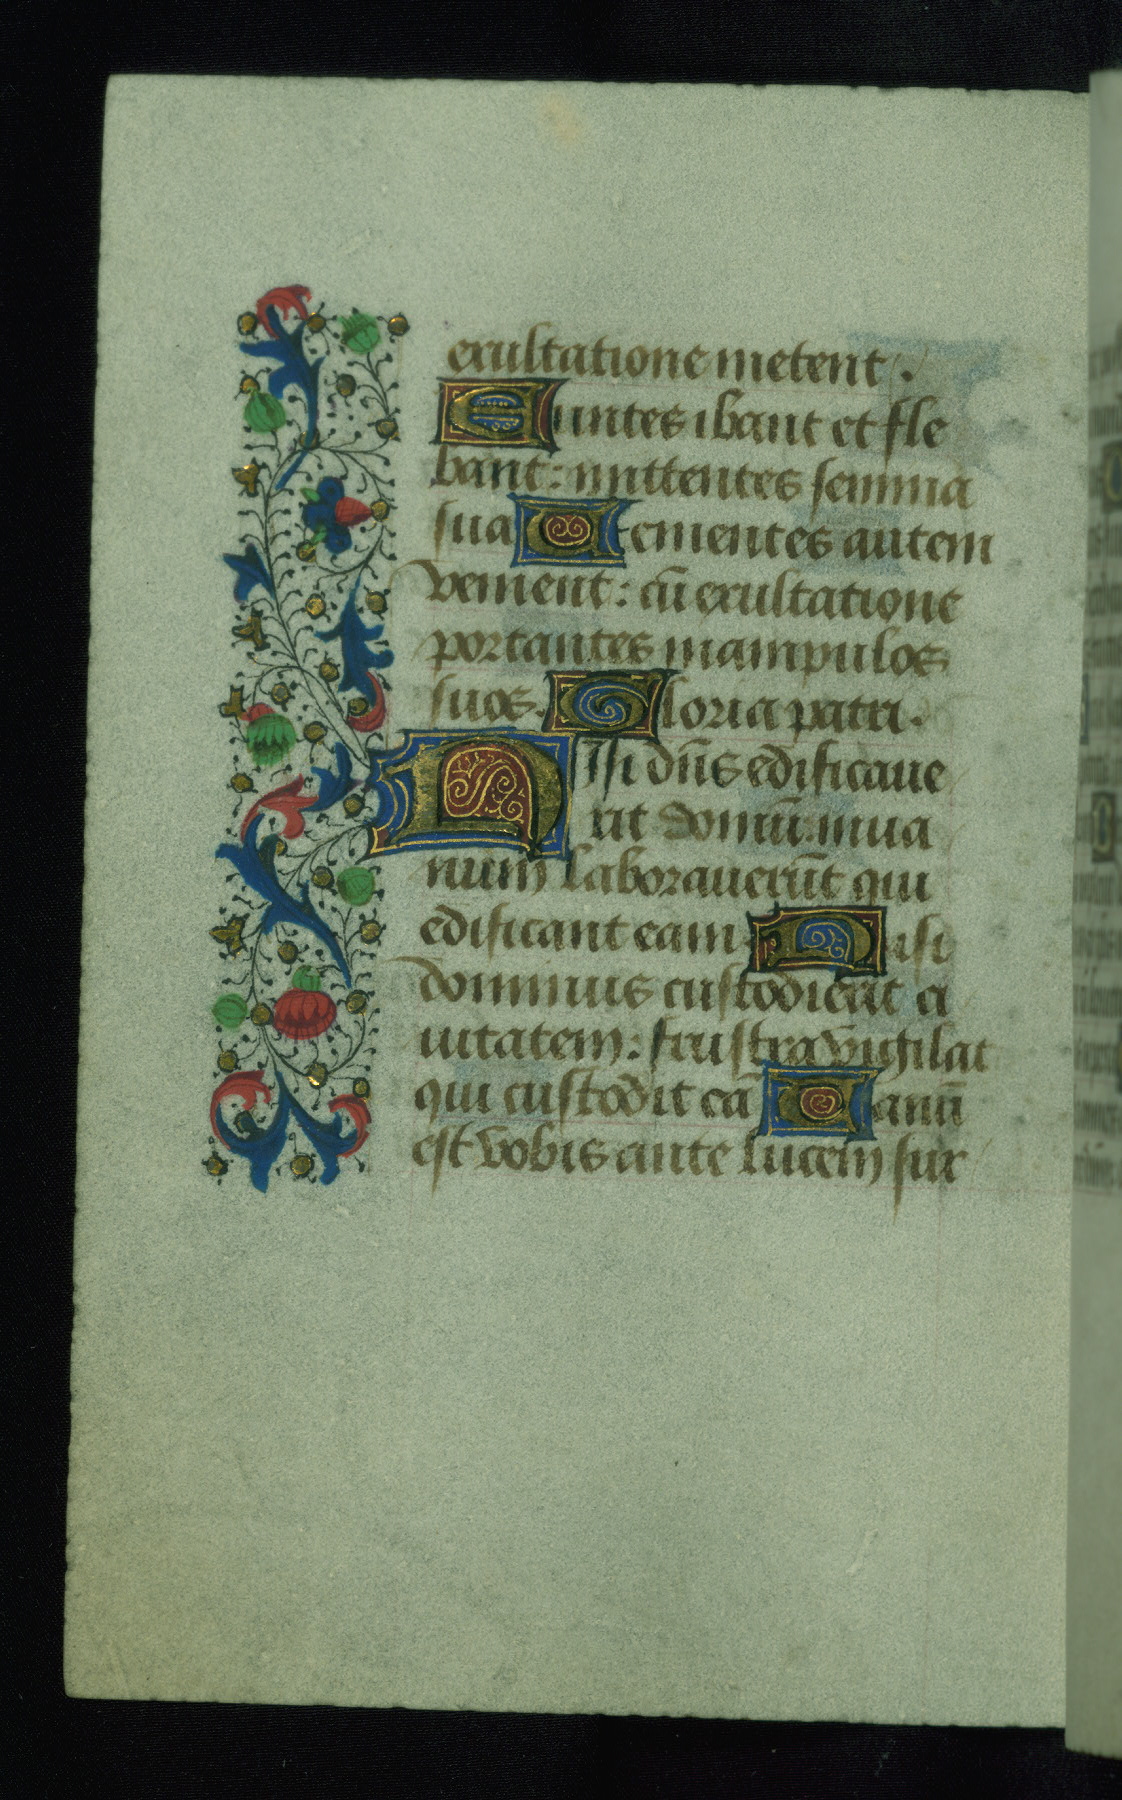 exultatione metent.
Euntes ibant et fle
bant: mittentes semina
sua Uenientes autem
venient: cũ exultatione
portantes manipulos
suos. Gloria patri.
Nisi dñs edificaue
rit domũ: inua
num laborauerũt qui
edificant eam Nisi
dominus custodierit ci
uitatem: frustra vigilat
qui custodit eã Uanũ
est vobis ante lucem sur